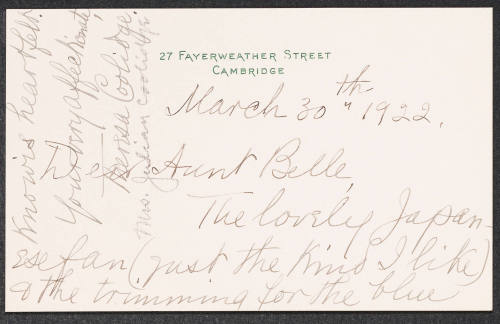 27 FAYERWEATHER STREET
CAMBRIDGE
March 30th 1922.
Dear Aunt Belle,
The lovely Japan-
ese fan (just the kind I like)
& the trimming for the blue
Know is heartfelt.
Your very affectionate
Theresa Coolidge.
Mrs. Julian Coolidge